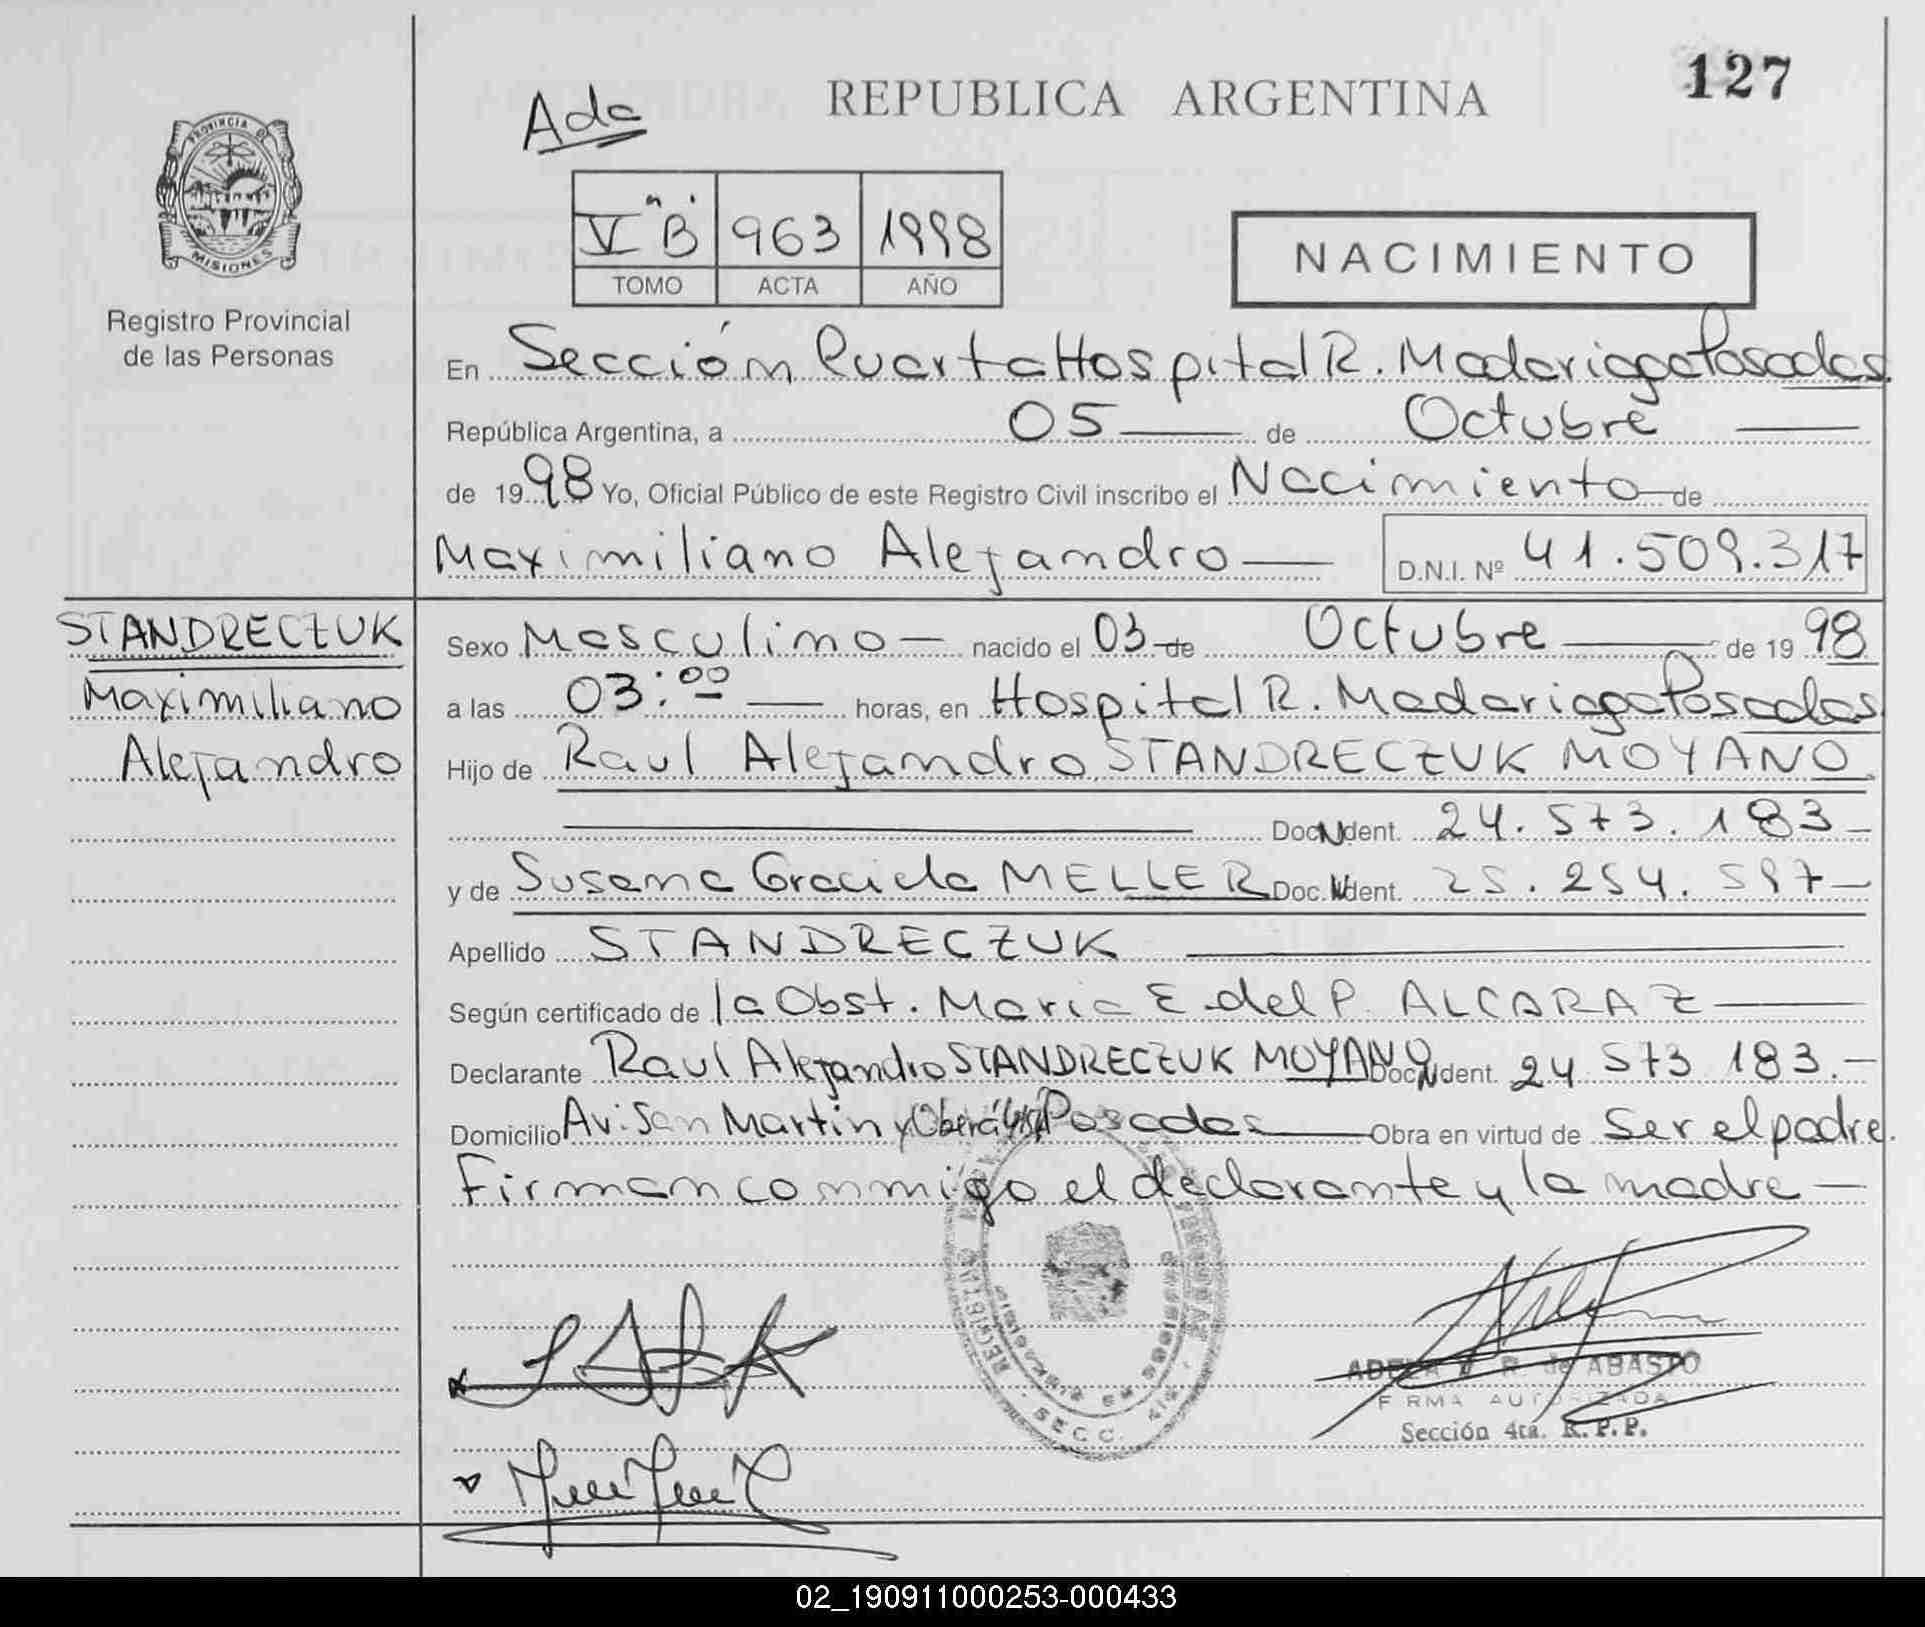 127
Ada
REPUBLICA ARGENTINA
PROVINCIA DE
MISIONES
Registro Provincial
de las Personas
V "B" 963 1998
TOMO ACTA AÑO
NACIMIENTO
En Sección Cuarta Hospital R. Madariaga Posadas.
República Argentina, a 05 de Octubre
de 1998 Yo, Oficial Público de este Registro Civil inscribo el Nacimiento de
Maximiliano Alejandro D.N.I. Nº 41.509.317
STANDRECZUK
Maximiliano
Alejandro
Sexo Masculino nacido el 03 de Octubre de 1998
a las 03:00 horas, en Hospital R. Madariaga Posadas
Hijo de Raul Alejandro STANDRECZUK MOYANO
Doc. Ident. 24.573.183
y de Susana Graciela MELLER Doc. Ident. 25.254.597
Apellido STANDRECZUK
Según certificado de la Obst. Maria E del P. ALCARAZ
Declarante Raul Alejandro STANDRECZUK MOYANO Doc. Ident. 24 573 183.
Domicilio Av. San Martin y Oberá Posadas Obra en virtud de Ser el padre.
Firman conmigo el declarante y la madre
REGISTRO
SECC. 4ta.
ADELA R. de ABASTO
FIRMA AUTORIZADA
Sección 4ta. R.P.P.
02_190911000253-000433